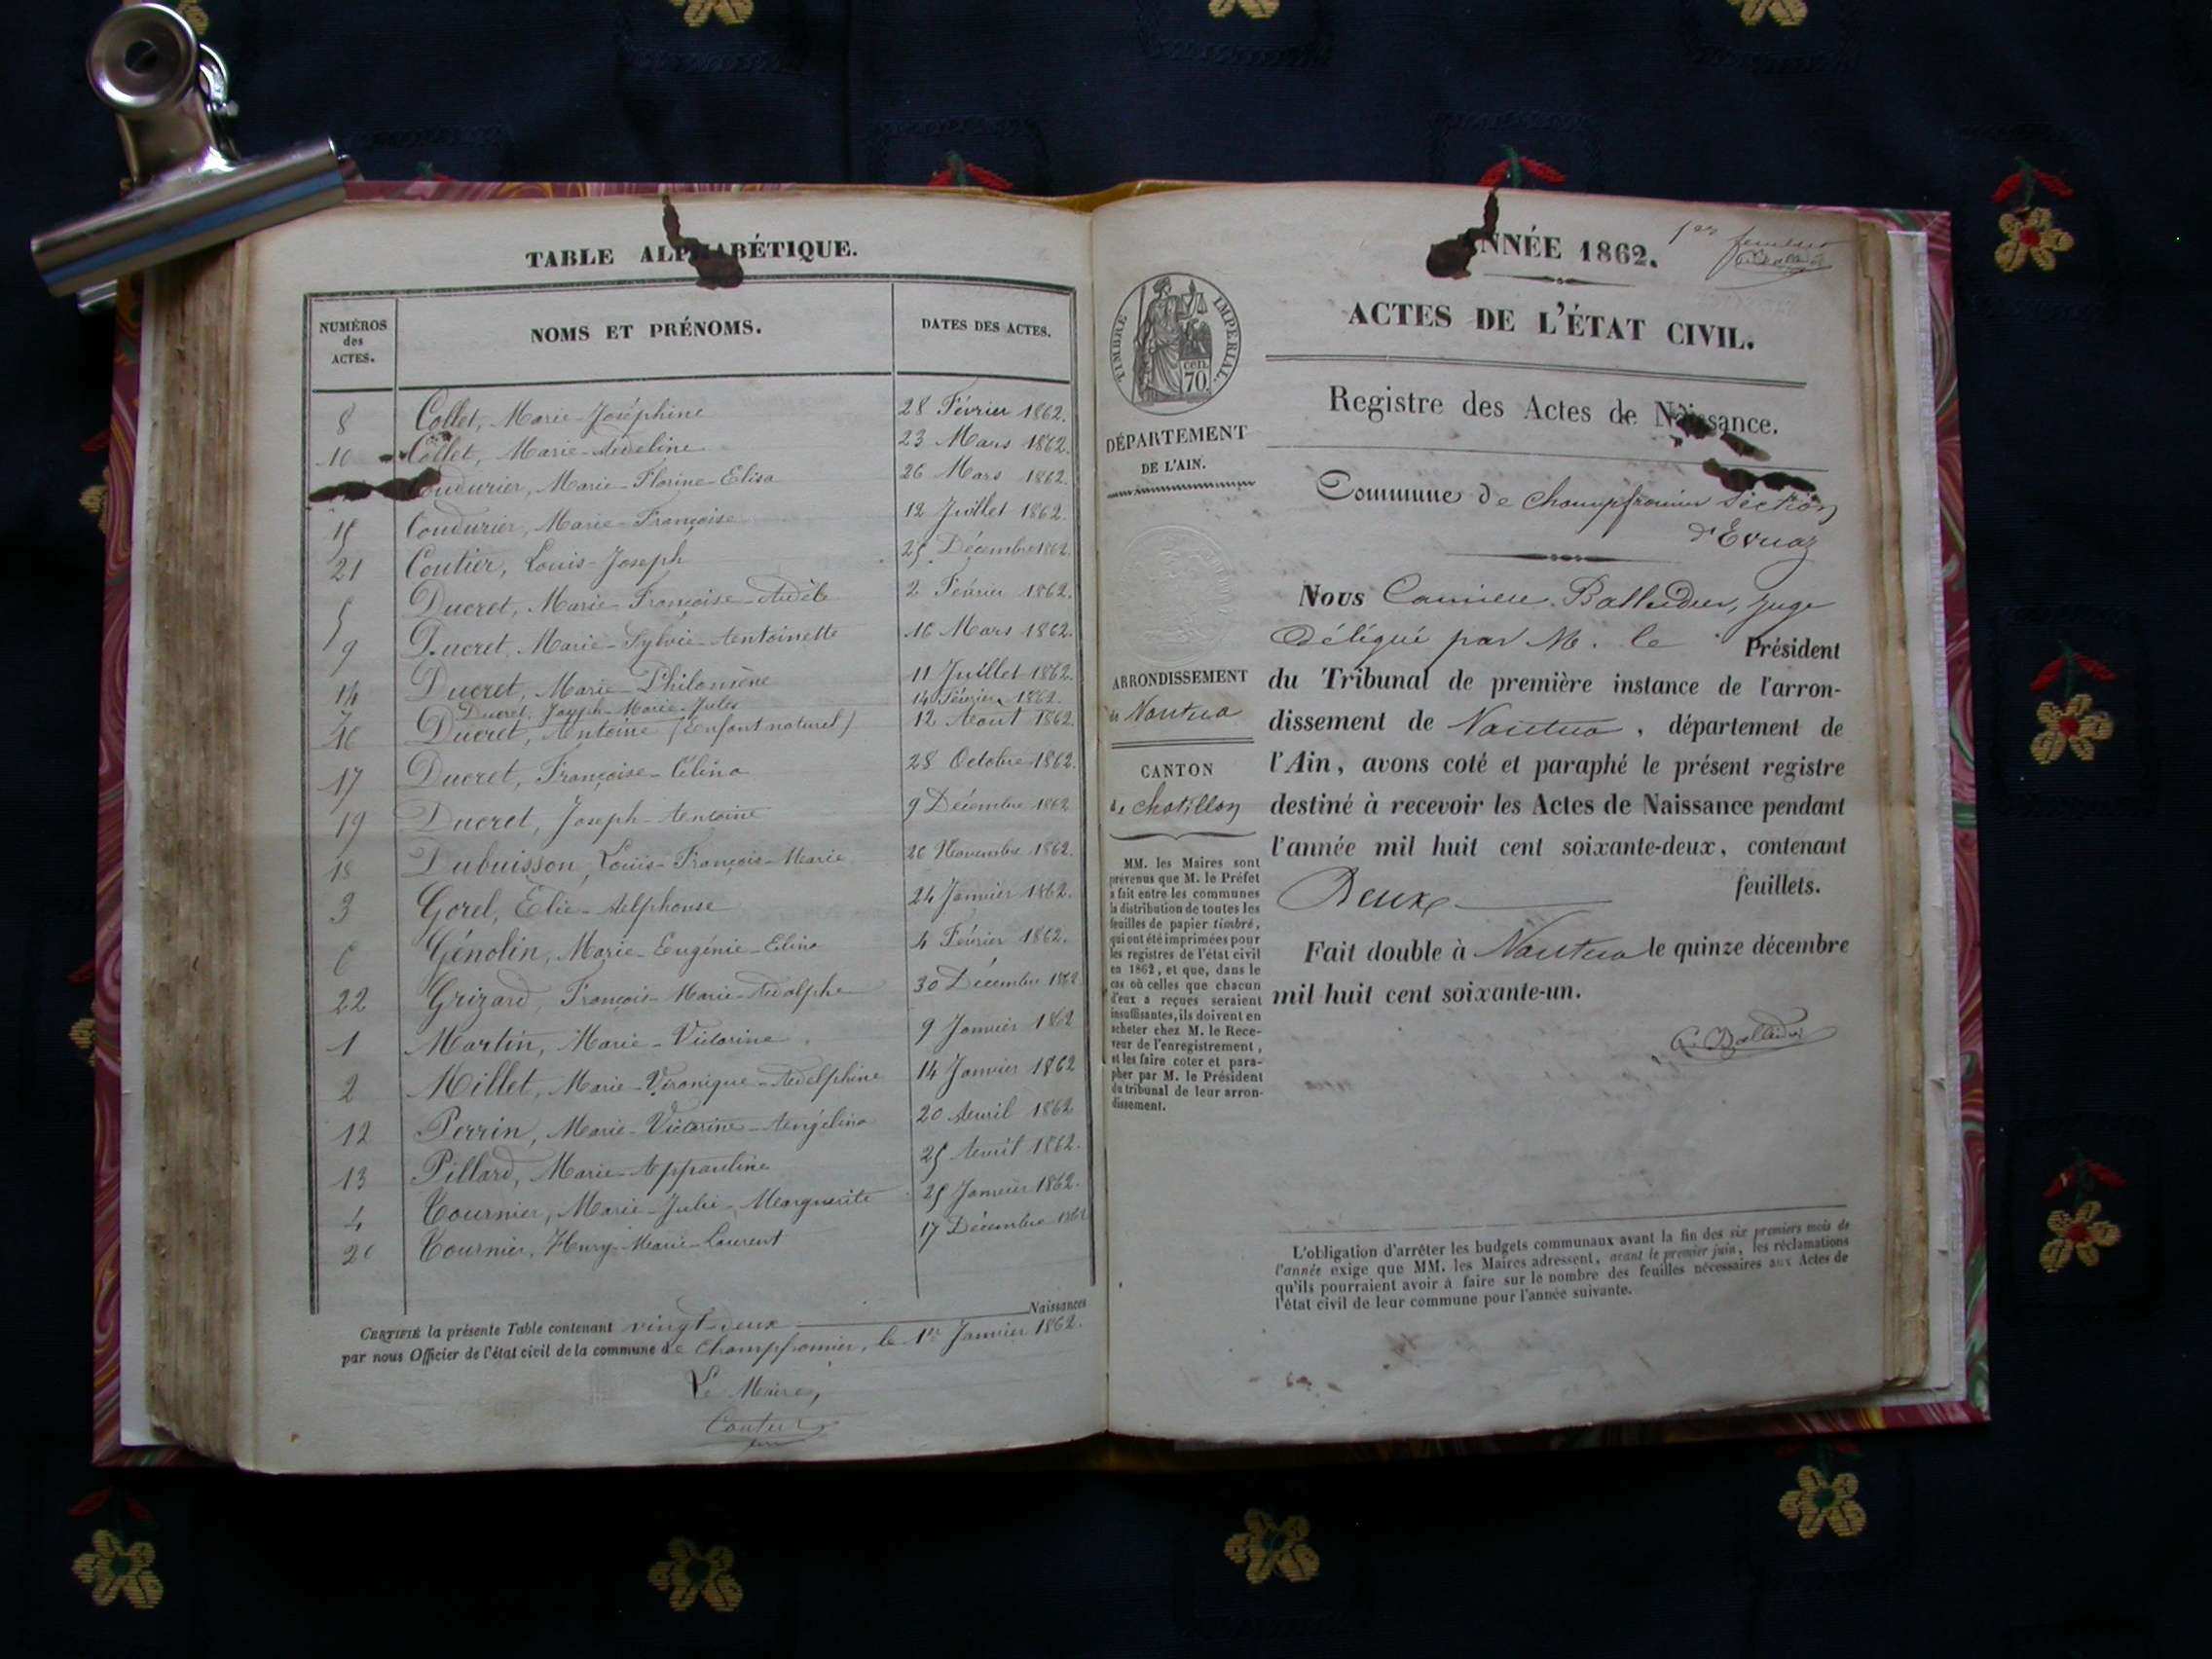 TABLE ALPHABÉTIQUE.
NUMÉROS des ACTES.
NOMS ET PRÉNOMS.
DATES DES ACTES.
8 Collet, Marie-Joséphine 28 Février 1862.
10 Collet, Marie-Adeline 23 Mars 1862.
Coudurier, Marie-Florine-Elisa 26 Mars 1862.
15 Coudurier, Marie-Françoise 12 Juillet 1862.
21 Coutier, Louis-Joseph 25 Décembre 1862.
5 Ducret, Marie-Françoise-Adèle 2 Février 1862.
9 Ducret, Marie-Sylvie-Antoinette 16 Mars 1862.
14 Ducret, Marie-Philomène 11 Juillet 1862.
7 Ducret, Joseph-Marie-Jules 14 Février 1862.
16 Ducret, Antoine (Enfant naturel) 12 Aout 1862.
17 Ducret, Françoise-Célina 28 Octobre 1862.
19 Ducret, Joseph-Antoine 9 Décembre 1862
18 Dubuisson, Louis-François-Marie 26 Novembre 1862.
3 Gorel, Elie-Alphonse 24 Janvier 1862.
6 Génolin, Marie-Eugénie-Elina 4 Février 1862.
22 Grizard, François-Marie-Adolphe 30 Décembre 1862
1 Martin, Marie-Victorine 9 Janvier 1862
2 Millet, Marie-Véronique-Adelphine 14 Janvier 1862
12 Perrin, Marie-Victorine-Angélina 20 Avril 1862
13 Pillard, Marie-Appauline 25 Avril 1862.
4 Tournier, Marie-Julie-Marguerite 25 Janvier 1862.
20 Tournier, Henry-Marie-Laurent 17 Décembre 1862
CERTIFIÉ la présente Table contenant vingt-deux Naissances
par nous Officier de l'état civil de la commune de Champfromier, le 1er Janvier 1862.
Le Maire,
Coutier
ANNÉE 1862.
1er feuillet
C. Balleidier
TIMBRE IMPÉRIAL.
70 cen.
ACTES DE L'ÉTAT CIVIL.
Registre des Actes de Naissance.
DÉPARTEMENT
DE L'AIN.
Commune de Champfromier Section
d'Evuaz
ARRONDISSEMENT
de Nantua
CANTON
de Chatillon
MM. les Maires sont
prévenus que M. le Préfet
a fait entre les communes
la distribution de toutes les
feuilles de papier timbré,
qui ont été imprimées pour
les registres de l'état civil
en 1862, et que, dans le
cas où celles que chacun
d'eux a reçues seraient
insuffisantes, ils doivent en
acheter chez M. le Rece-
veur de l'enregistrement,
et les faire coter et para-
pher par M. le Président
du tribunal de leur arron-
dissement.
Nous Camille Balleidier, juge
délégué par M. le Président
du Tribunal de première instance de l'arron-
dissement de Nantua, département de
l'Ain, avons coté et paraphé le présent registre
destiné à recevoir les Actes de Naissance pendant
l'année mil huit cent soixante-deux, contenant
Deux feuillets.
Fait double à Nantua le quinze décembre
mil huit cent soixante-un.
C. Balleidier
L'obligation d'arrêter les budgets communaux avant la fin des six premiers mois de
l'année exige que MM. les Maires adressent, avant le premier juin, les réclamations
qu'ils pourraient avoir à faire sur le nombre des feuilles nécessaires aux Actes de
l'état civil de leur commune pour l'année suivante.